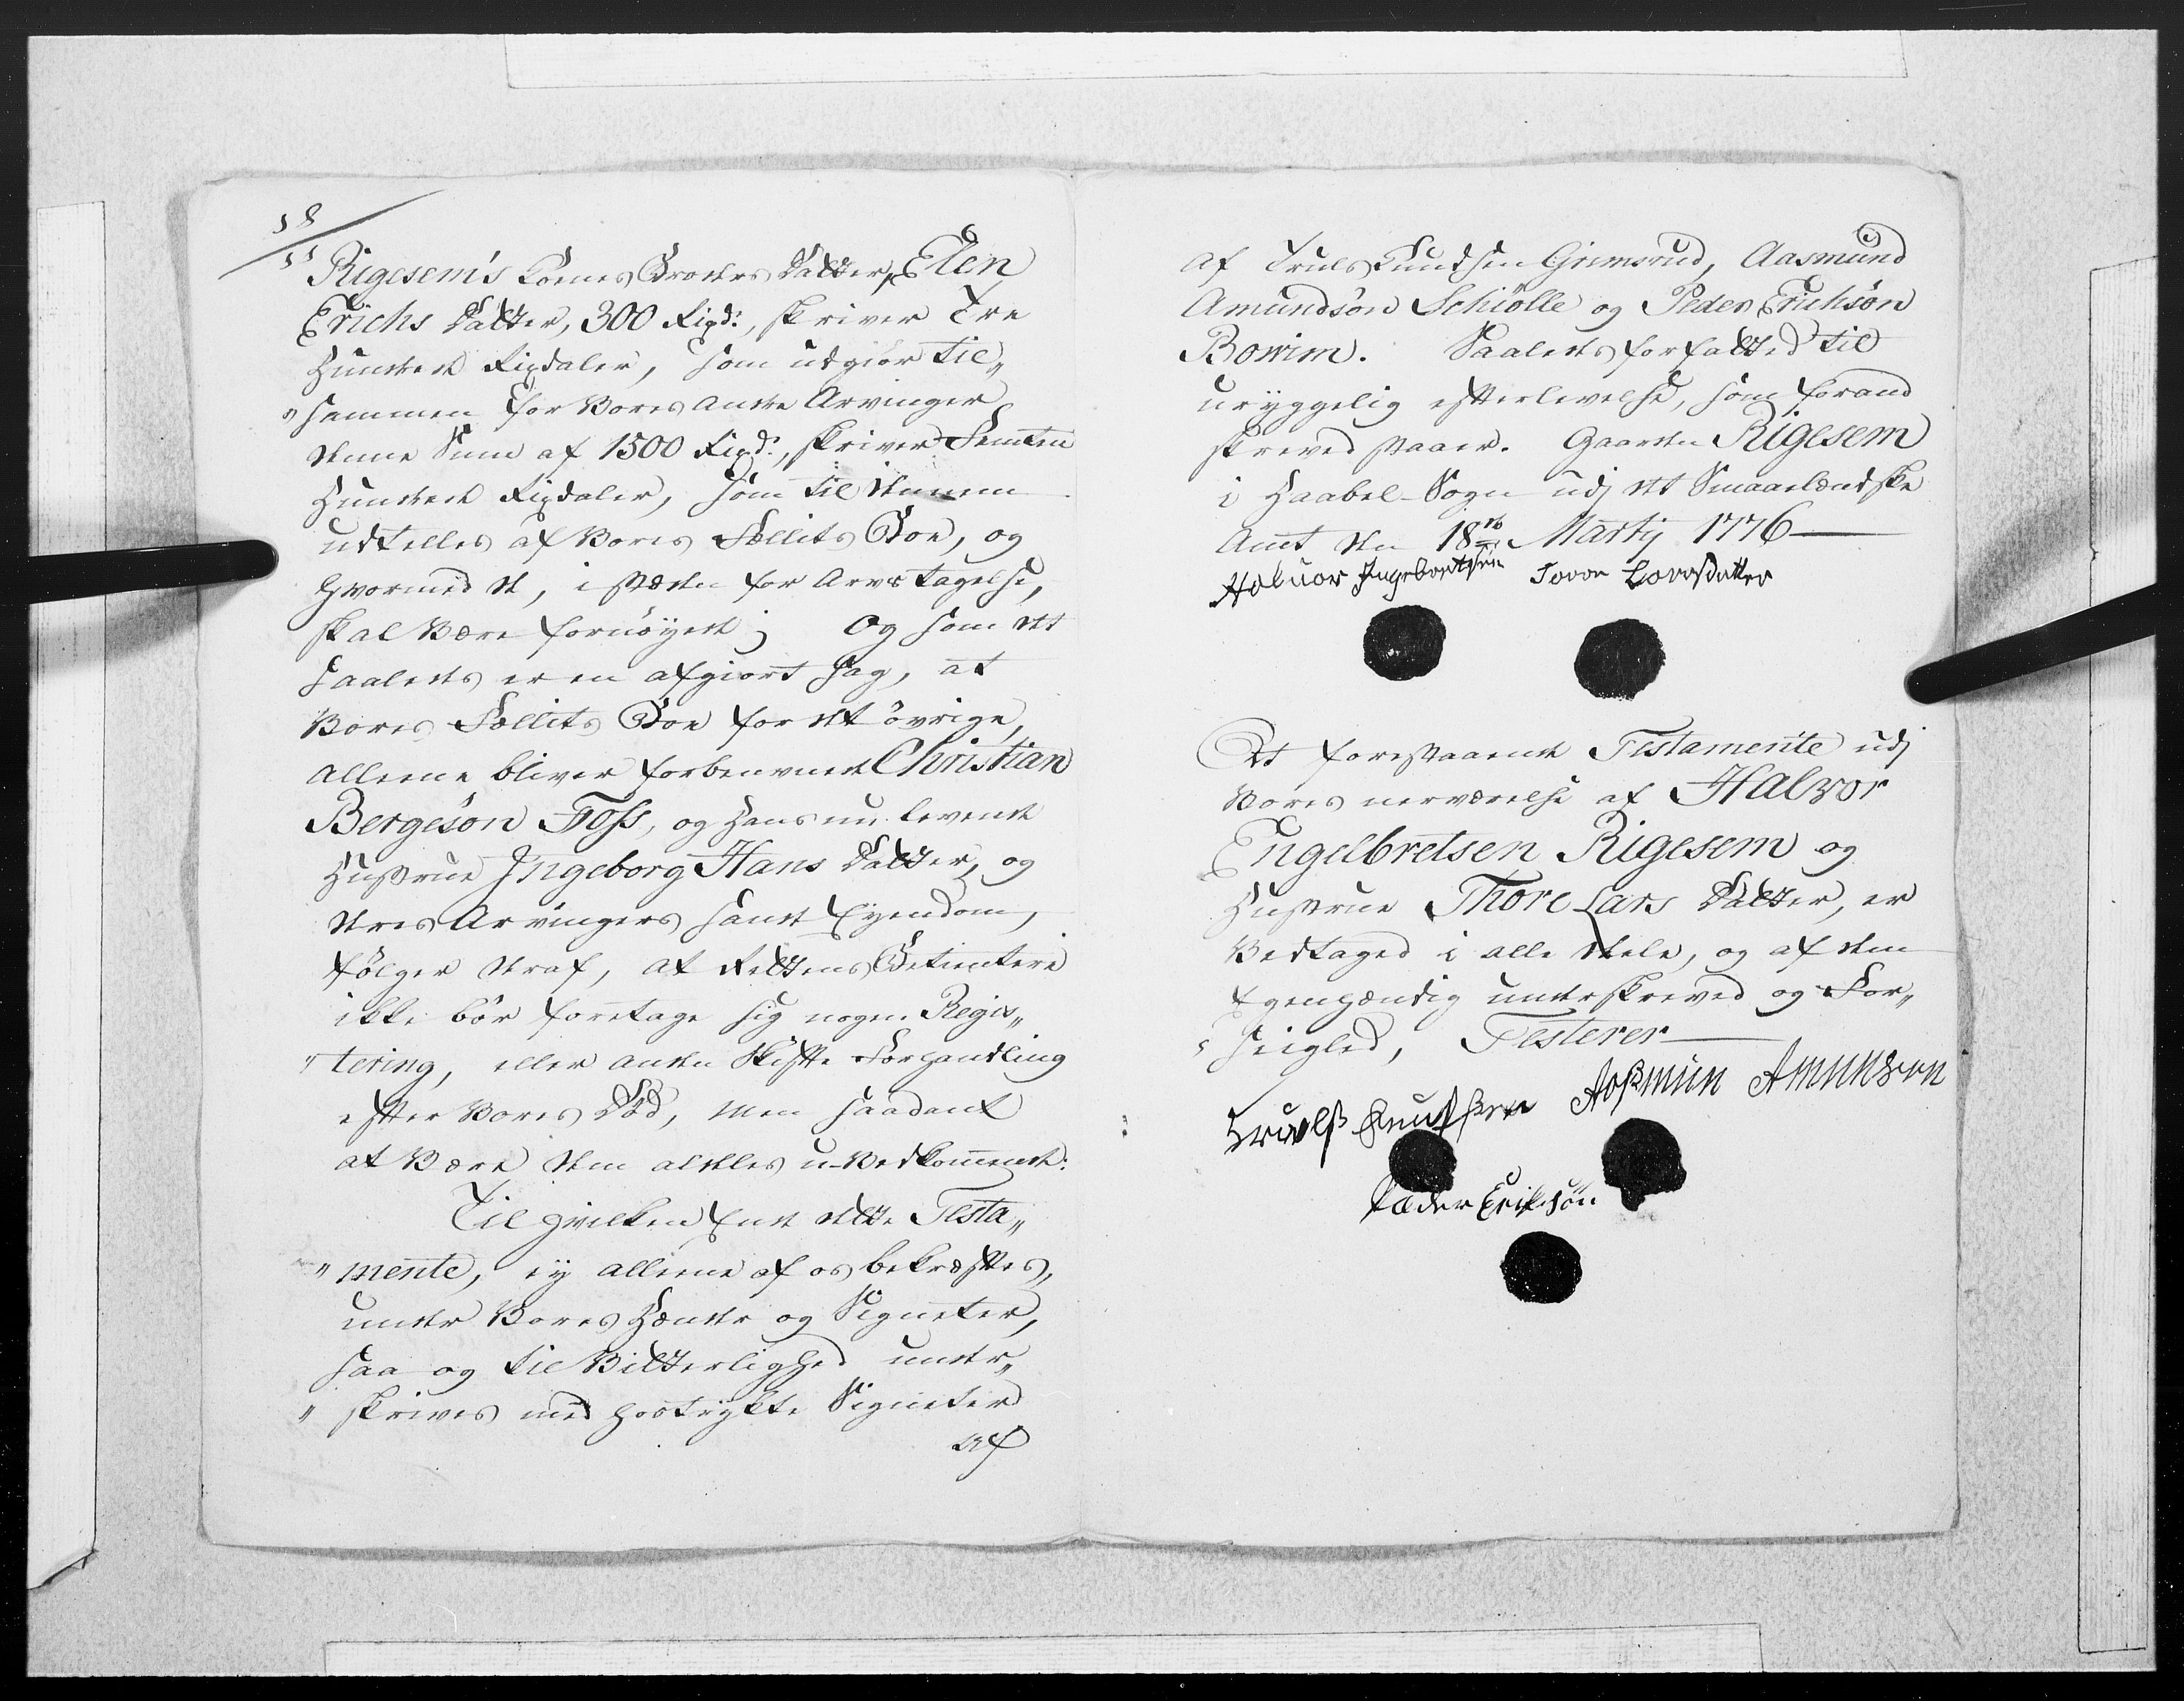 Rigesem's Kones Broders Datter, Elen
Erichs Datter, 300 Rixd:, skriver Tre
Hundrede Rixdaler, som udgiør til„
„sammen for Vores andre Arvinger
denne Sum af 1500 Rixd:, skriver Femten
Hundrede Rixdaler, som til dennem
udtelles af Vores Fællits Boe, og
hvormed de, i stæden for Arvs tagelse,
skal Være fornöyede; Og som det
saaledes er en afgiort sag, at
Vores Fællits Boe for det övrige,
alleene bliver forbenevnte Christian
Bergesön Foss, og Hans nu levende
Hustrue Ingeborg Hans Datter, og
deres Arvingers sande Eyendom,
fölger deraf, at Rettens Betientere
ikke bör foretage sig nogen Regis„
„tering, eller anden Skifte Forhandling
efter Vores Död, men saadant
at Være dem aldeles u-Vedkommende:
Til hvilken Ende dette Testa„
„mente, ey alleene af os bekræftes,
under Vores Hænder og Signeter,
saa og til Vitterlighed under„
„skrives med hostrykte Signeter
af
af Truls Knudsen Grimsrud, Aasmund
Amundsön Schiölle og Peder Erichsön
Bowim. Saaledes forfatted til
uryggelig efterlevelse, som foran
skreved staaer. Gaarden Rigesem
i Haabel-Sogn udj det Smaalendske
Amt den 18de Martij 1776
Haluor Ingebortsen Toror Lorosdatter
At forestaaende Testamente udj
Vores nerværelse af Halvor
Engelbretsen Rigesem og
Hustrue Thore Lars Datter, er
Vedtaged i alle deele, og af dem
Egenhændig underskreved og For„
„seigled, Testerer
Truels Knudsen Aosmun Amunson
Pæder Eriksön